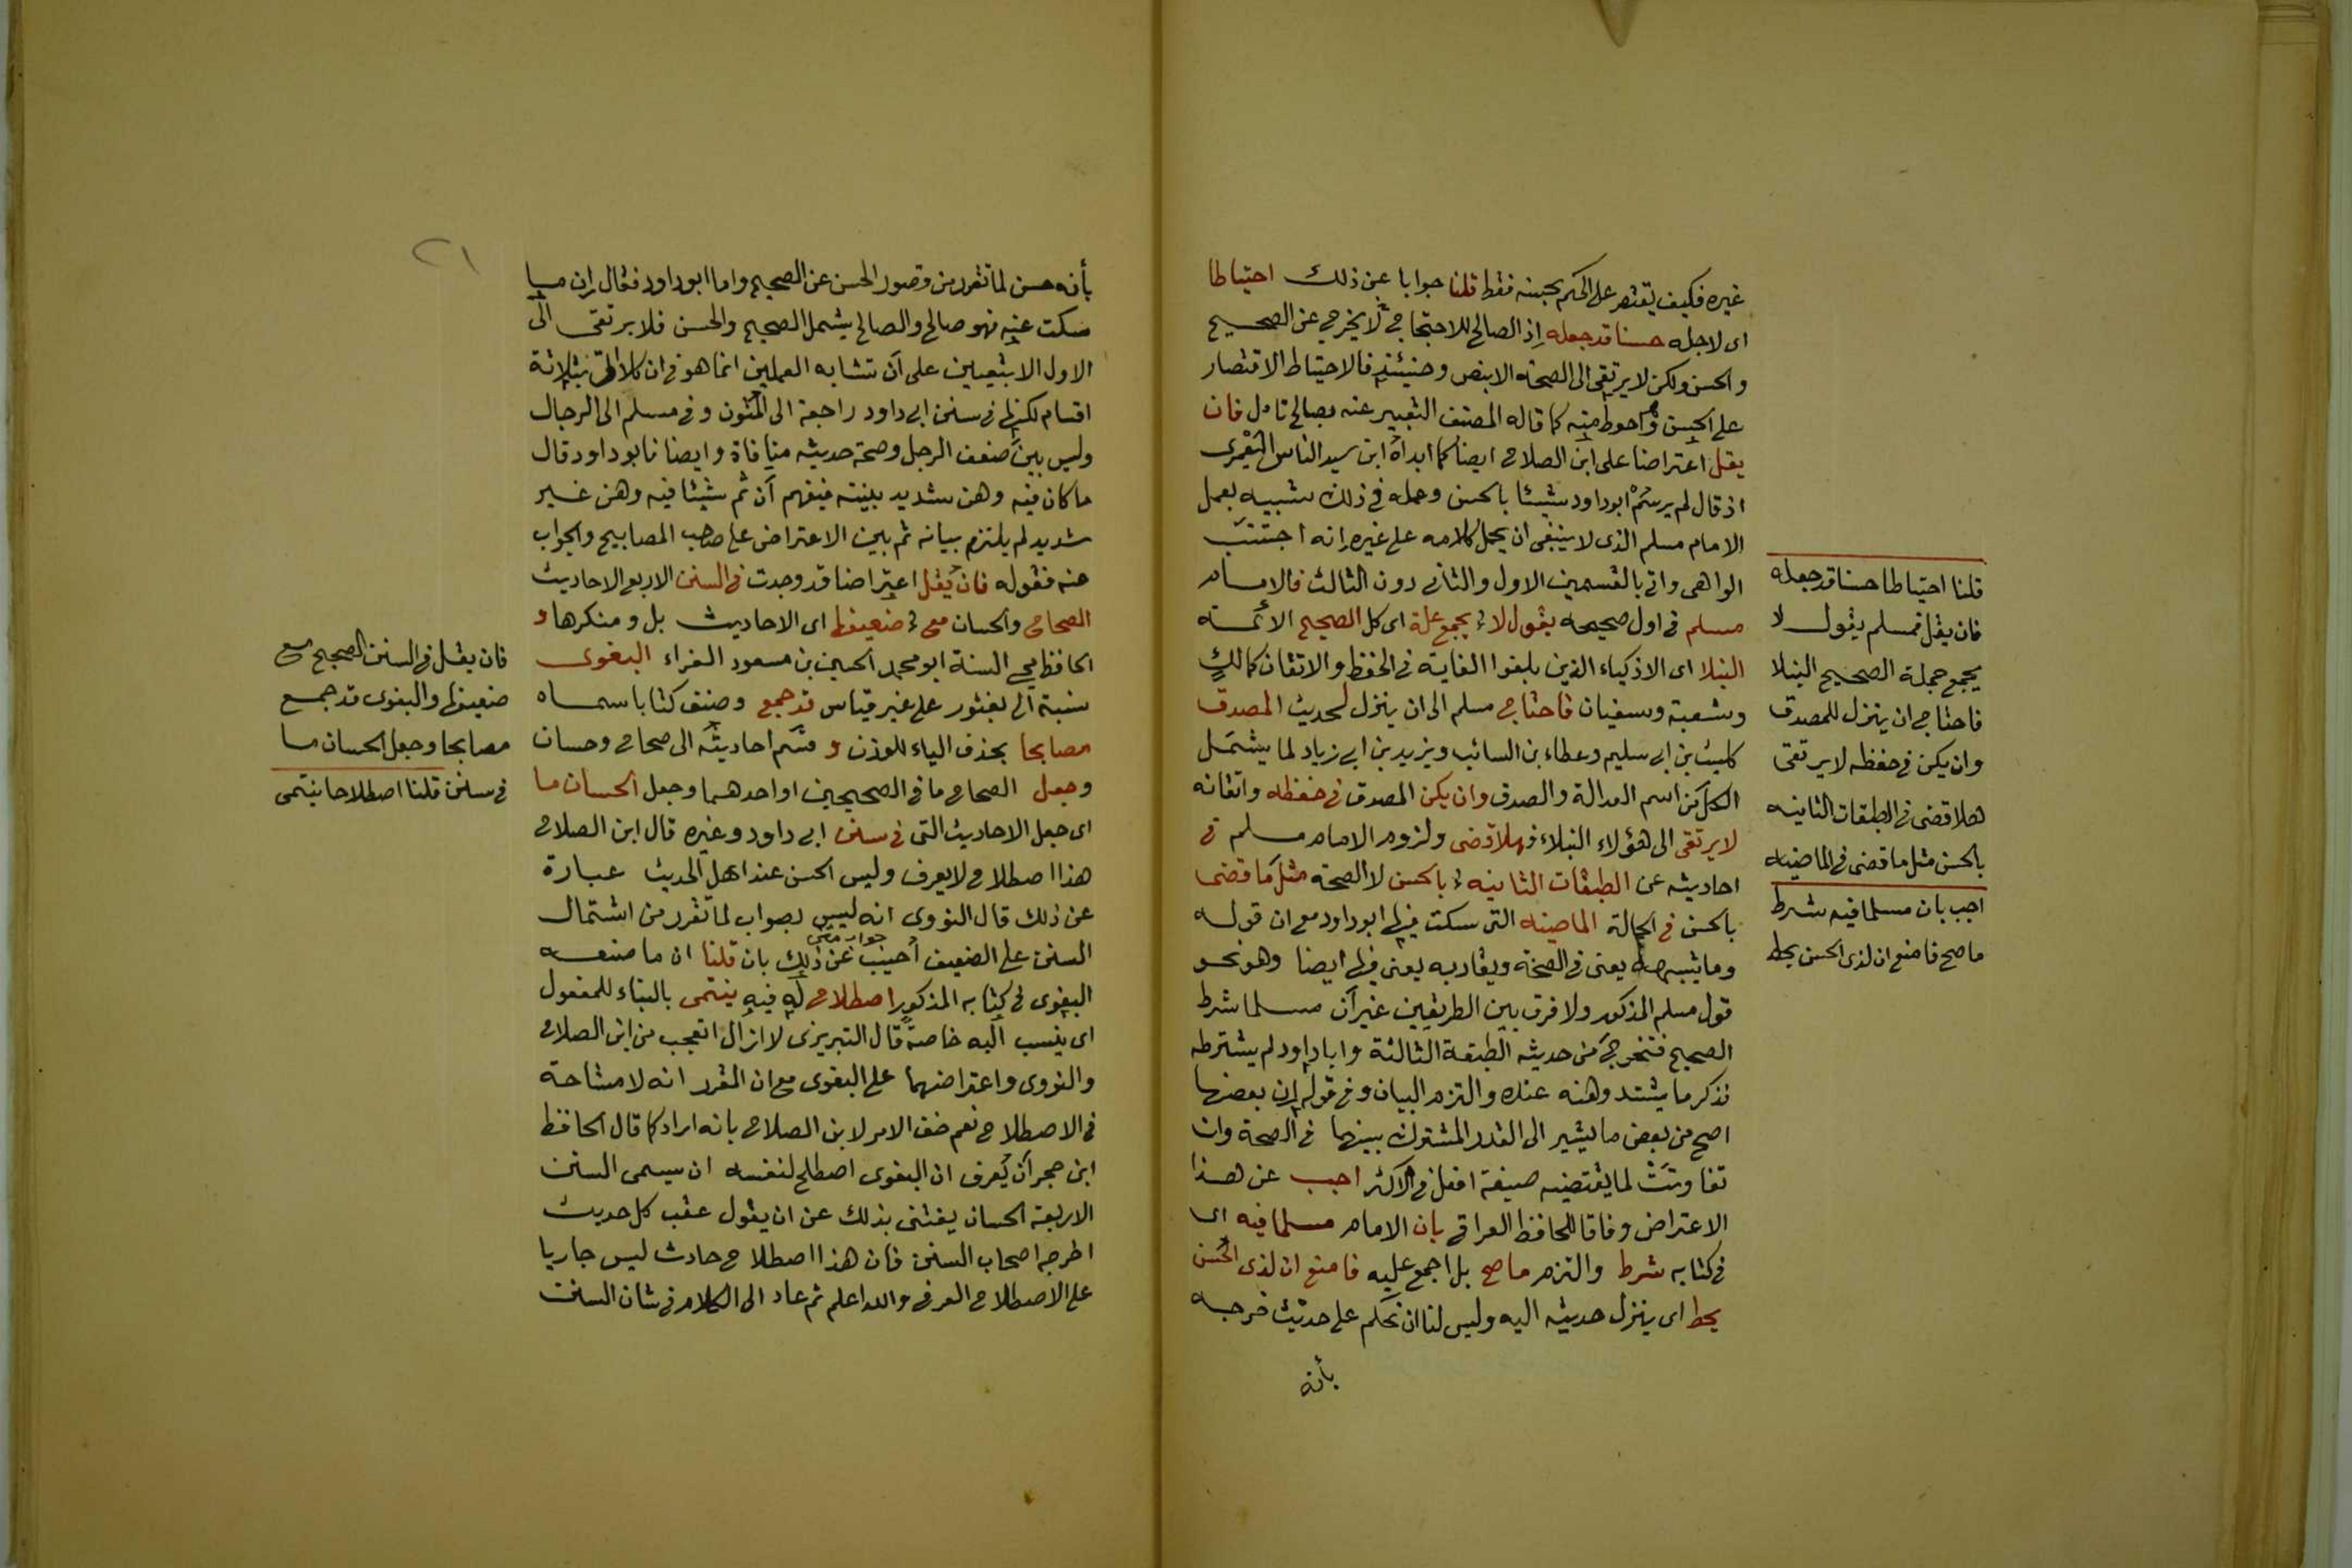 غيره فكيف يقتصر على الحكم بحسنه فقط قلنا جوابا عن ذلك احتياطا
اى لاجله حسنا قد جعله إذ الصالح للاحتجاج لا يخرج عن الصحيح
والحسن ولكن لا يرتقى الى الصحة الا بنص وحينئذ فالاحتياط الاقتصار
على الحسن واحوط منه كما قاله المصنف التعبير عنه بصالح تأمل فان
يقل اعتراضا على ابن الصلاح ايضا كما ابداه ابن سيد الناس اليعمرى
اذ قال لم يرسم ابوداود شيئا بالحسن وعمله فى ذلك شبيه بعمل
الامام مسلم الذى لا ينبغى ان يحمل كلامه على غيره إنه اجتنب
الواهى واتى بالقسمين الاول والثانى دون الثالث فالامام
مسلم فى اول صحيحه يقول لا يجمع علة اى كل الصحيح الائمة
النبلا اى الاذكياء الذين بلغوا الغاية فى الحفظ والاتقان كمالك
وشعبة وسفيان فاحتاج مسلم الى ان ينزل لحديث المصدق
كليث بن ابى سليم وعطاء بن السائب ويزيد بن ابى زياد لما يشمل
الكل من اسم العدالة والصدق وان يكن المصدق فى حفظه واتقانه
لا يرتقى الى هؤلاء النبلاء فهلا قضى ولزوم الامام مسلم فى
احاديثه عن الطبقات الثانيه بالحسن لا الصحة مثل ما قضى
بالحسن فى الحالة الماضيه التى سكت فيها ابوداود مع ان قوله
وما يشبهه يعنى فى الصحة ويقاربه يعنى فيها ايضا وهو نحو
قول مسلم المذكور ولا فرق بين الطريقين غير أن مسلما شرط
الصحيح فتحرج من حديثه الطبقة الثالثة وابا داود لم يشترطه
فذكر ما يشتد وهنه عنده والتزم البيان وفى قوله إن بعضها
اصح من بعض ما يشير الى القدر المشترك بينها فى الصحة وان
تفاوتت لما يقتضيه صيغة افعل فى الاكثر اجب عن هذا
الاعتراض وفاقا للحافظ العراقى بان الامام مسلما فيه اى
فى كتابه شرط والتزم ما صح بل اجمع عليه فامنع ان لذى الحسن
يحط اى ينزل حديثه اليه وليس لنا ان نحكم على حديث خرجه
بأنه
قلنا احتياطا حسنا قد جعله
فان يقل فمسلم يقول لا
يجمع جملة الصحيح النبلا
فاحتاج ان ينزل للمصدق
وان يكن فى حفظه لا يرتقى
هلا قضى فى الطبقات الثانيه
بالحسن مثل ما قضى فى الماضيه
اجب بان مسلما فيه شرط
ما صح فامنع ان لذى الحسن يحط
٢١
بأنه حسن لما تقرر من قصور الحسن عن الصحيح واما ابوداود فقال إن ما
سكت عنه فهو صالح والصالح يشمل الصحيح والحسن فلا يرتقى الى
الاول الا بتعيين على أن تشابه العملين انما هو فى ان كلا اتى بثلاثة
اقسام لكنها فى سنن ابى داود راجعة الى المتون وفى مسلم الى الرجال
وليس بين ضعف الرجل وصحة حديثه منافاة وايضا فابوداود قال
ما كان فيه وهن شديد بينته فيفهم أن ثم شيئا فيه وهن غير
شديد لم يلتزم بيانه ثم بين الاعتراض على صاحب المصابيح والجواب
عنه فقوله فان يقل اعتراضا قد وجدت فى السنن الاربع الاحاديث
الصحاح والحسان مع ضعيفها اى الاحاديث بل ومنكرها و
الحافظ محيى السنة ابو محمد الحسين بن مسعود الفراء البغوى
نسبة الى بغشور على غير قياس قد جمع وصنف كتابا سماه
مصابحا بحذف الياء للوزن و قسم احاديثه الى صحاح وحسان
وجعل الصحاح ما فى الصحيحين او احدهما وجعل الحسان ما
اى جعل الاحاديث التى فى سنن ابى داود وغيره قال ابن الصلاح
هذا اصطلاح لا يعرف وليس الحسن عند اهل الحديث عبارة
عن ذلك قال النووى انه ليس بصواب لما تقرر من اشتمال
السنن على الضعيف أجيب عن ذلك بان قلنا ان ما صنعه
البغوى فى كتابه المذكور اصطلاح له فيه ينتمى بالبناء للمفعول
اى ينسب اليه خاصة قال التبريزى لا ازال اتعجب من ابن الصلاح
والنووى واعتراضهما على البغوى مع ان المقرر انه لا مشاحة
فى الاصطلاح نعم خفف الامر لابن الصلاح بانه اراد كما قال الحافظ
ابن حجر أن يعرف ان البغوى اصطلح لنفسه ان يسمى السنن
الاربعة الحسان يغتنى بذلك عن ان يقول عقب كل حديث
اخرجه اصحاب السنن فان هذا اصطلاح حادث ليس جاريا
على الاصطلاح العرفى والله اعلم ثم عاد الى الكلام فى شان السنن
فان يقل فى السنن الصحيح مع
ضعيفها والبغوى قد جمع
مصابحا وجعل الحسان ما
فى سنن قلنا اصطلاحا ينتمى